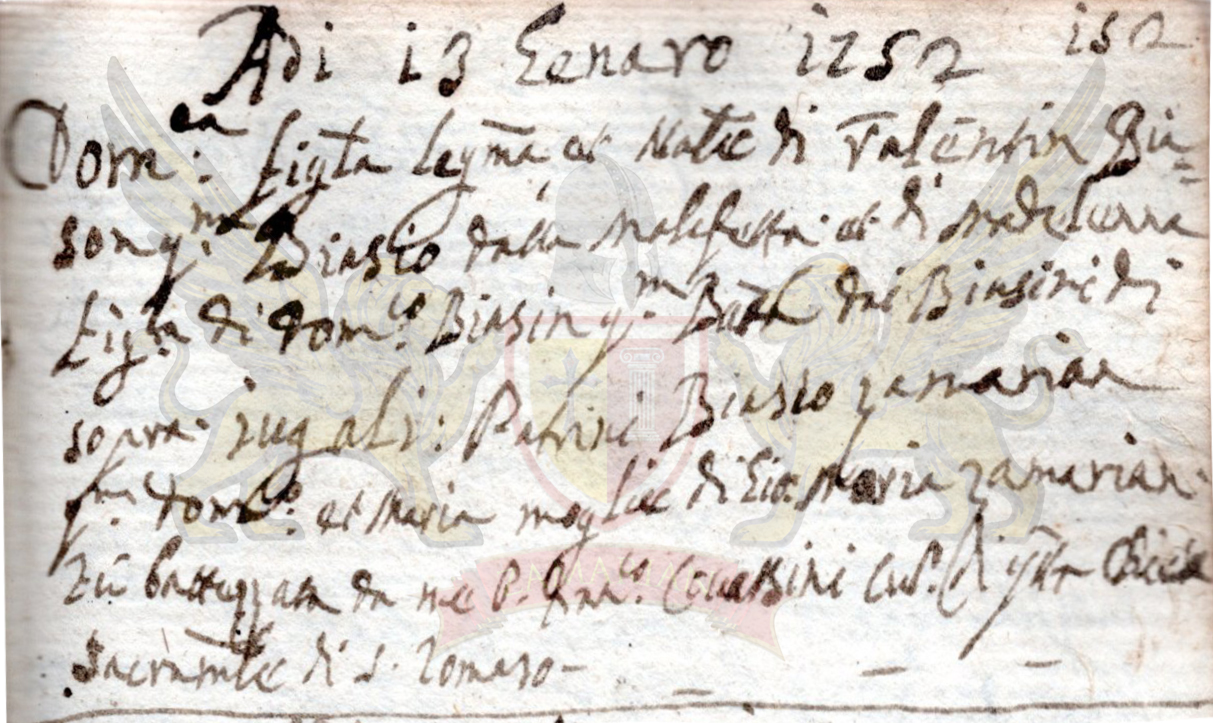 Adi 13 Genaro 1752 152
Dom:ca figta legma et Natle di Valentin Bia=
son q.m Biasio dalla Malafesta et di Madelena
figla di Dom.co Biasin q.m Batta dei Biasini di
sopra jugali: Patrini Biasio zamarian
q.m Dom.co et Maria moglie di Gio: Maria zamarian
fù battezzata da me P. Fran.co Covassini Cur. di qsta Chiesa
Sacramle di S. Tomaso